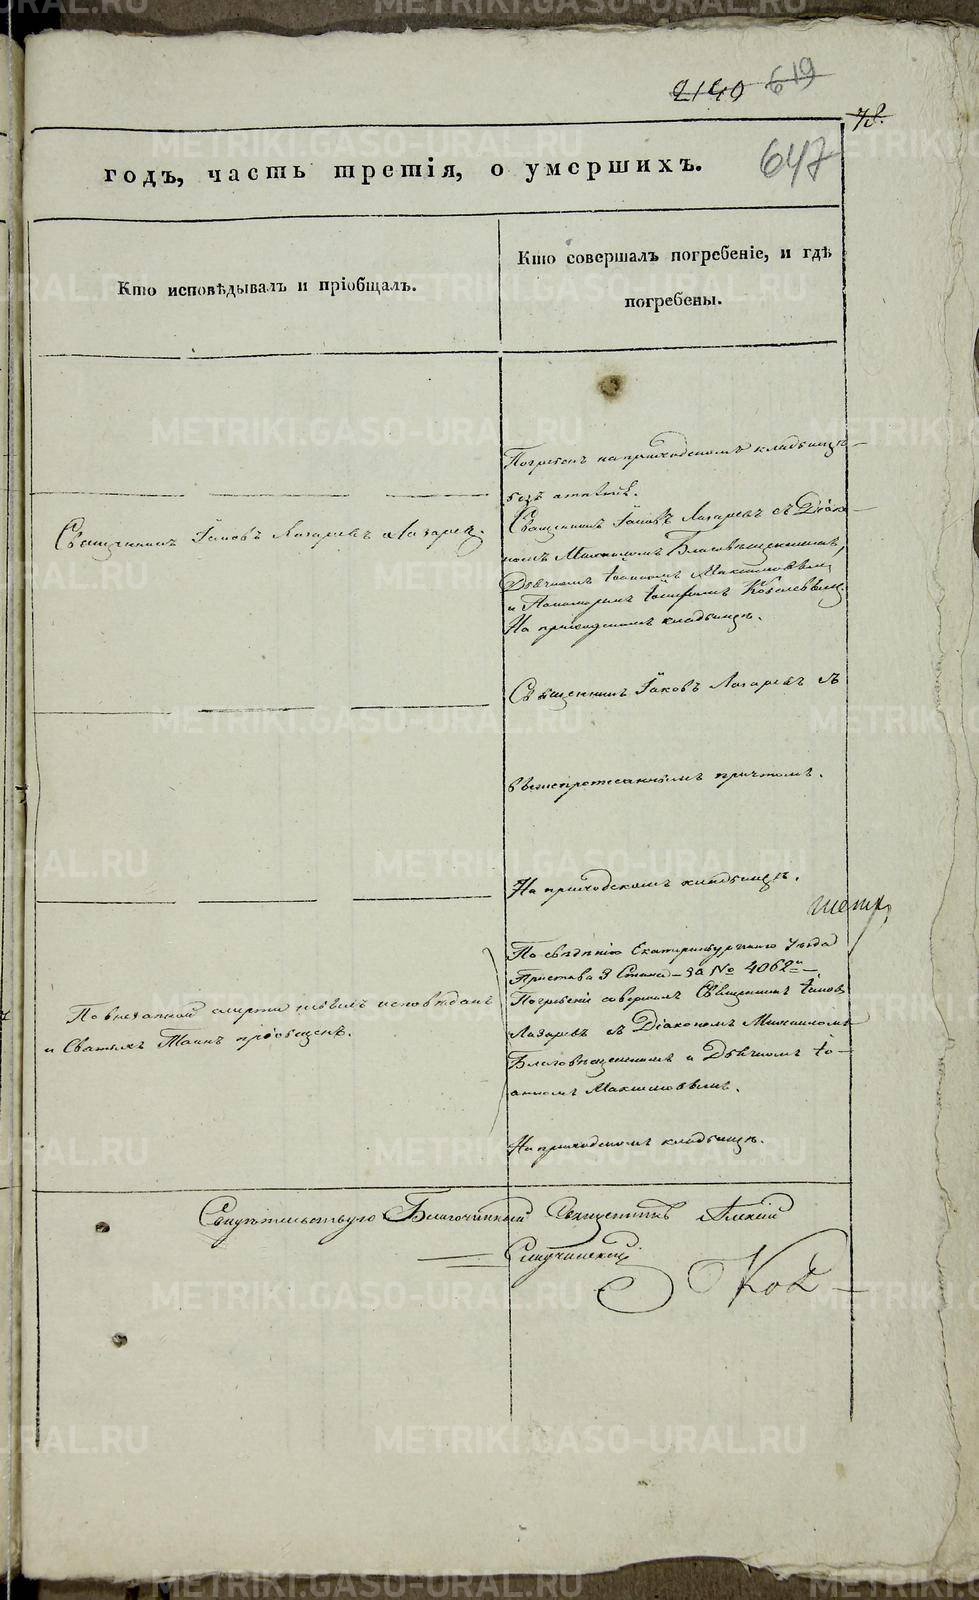 2140 619
78.
647
годъ, часть третія, о умершихъ.
Кто исповѣдывалъ и пріобщалъ.
Кто совершалъ погребеніе, и гдѣ
погребены.
Погребенъ на приходскомъ кладбищѣ
безъ
Священникъ Іаковъ Лазаревъ Лазаревъ.
Священникъ Іаковъ Лазаревъ съ Діако-
номъ Михаиломъ Благовѣщенскимъ,
Дьячкомъ Іоанномъ Максимовымъ
и Пономаремъ Іосифомъ
На приходскомъ кладбищѣ.
Священникъ Іаковъ Лазаревъ съ
вышепрописаннымъ причтомъ.
На приходскомъ кладбищѣ.
По свѣденію Екатеринбургскаго Уѣзда
Пристава 3 Стана – за № 4062м –
Погребеніе совершалъ Священникъ Іаковъ
Лазаревъ съ Діакономъ Михаиломъ
Благовѣщенскимъ и Дьячкомъ Іо-
анномъ Максимовымъ.
На приходскомъ кладбищѣ.
По внезапной смерти небылъ исповѣданъ
и Святыхъ Таинъ пріобщенъ.
Свидѣтельствую Благочинный Священникъ Алексій
METRIKI.GASO-URAL.RU